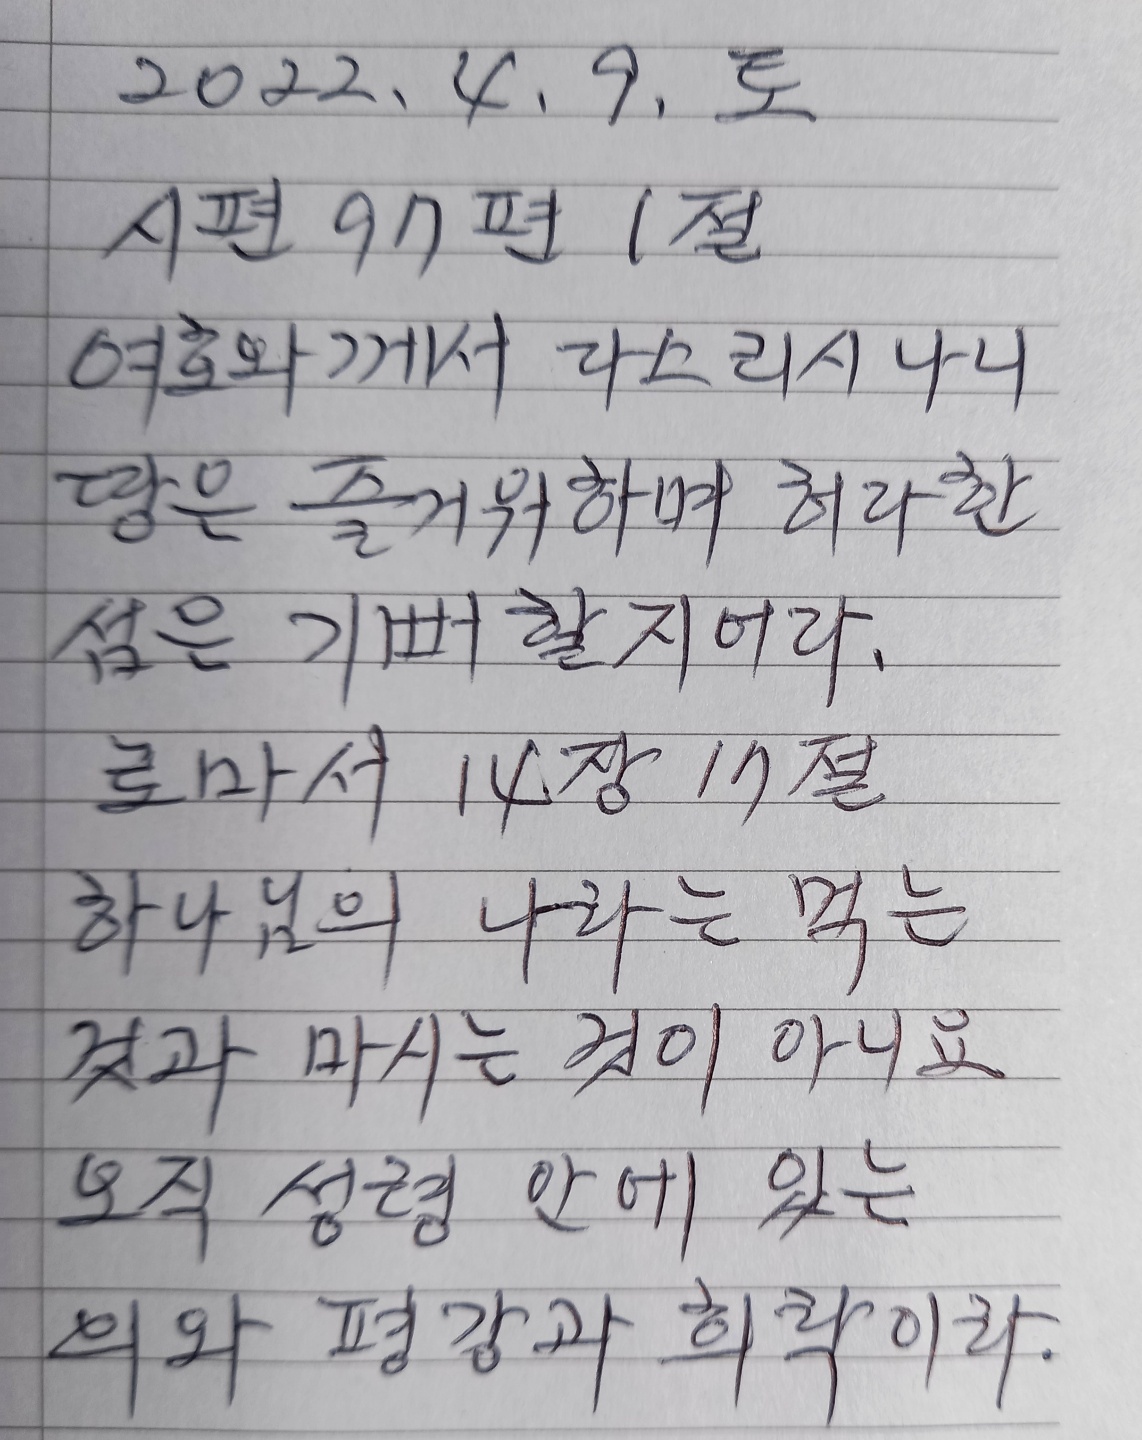 2022. 4. 9. 토
시편 97편 1절
여호와께서 다스리시나니
땅은 즐거워하며 허다한
섬은 기뻐할지어라.
로마서 14장 17절
하나님의 나라는 먹는
것과 마시는 것이 아니요
오직 성령 안에 있는
의와 평강과 희락이라.